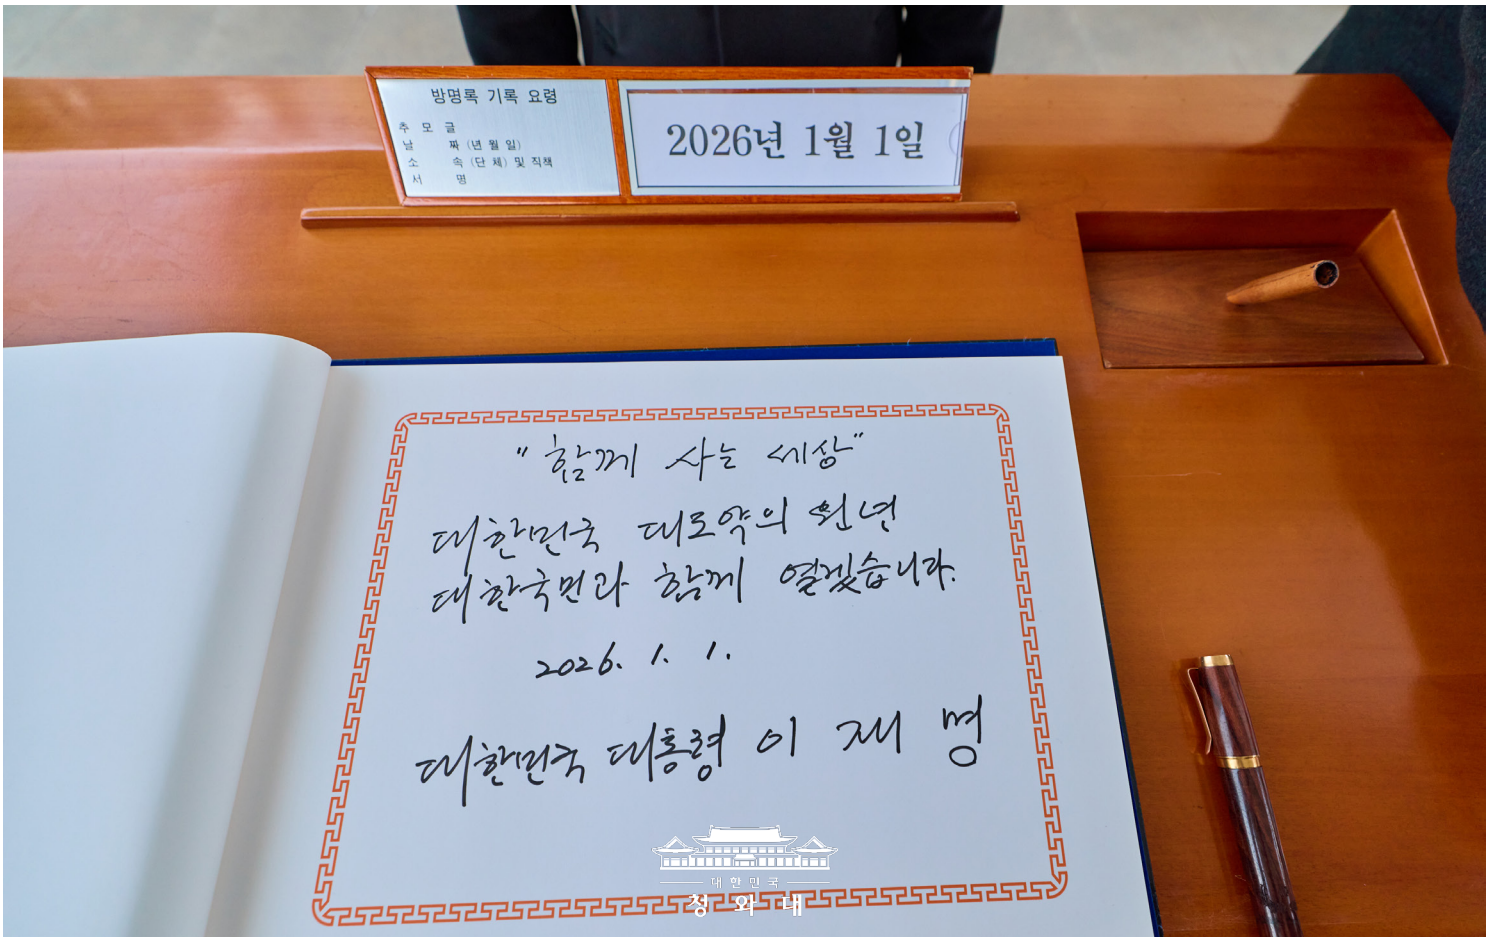 방명록 기록 요령
추 모 글
날 짜 (년 월 일)
소 속 (단 체) 및 직책
서 명
2026년 1월 1일
"함께 사는 세상"
대한민국 대도약의 원년
대한국민과 함께 열겠습니다.
2026. 1. 1.
대한민국 대통령 이 재 명
대한민국
청와대